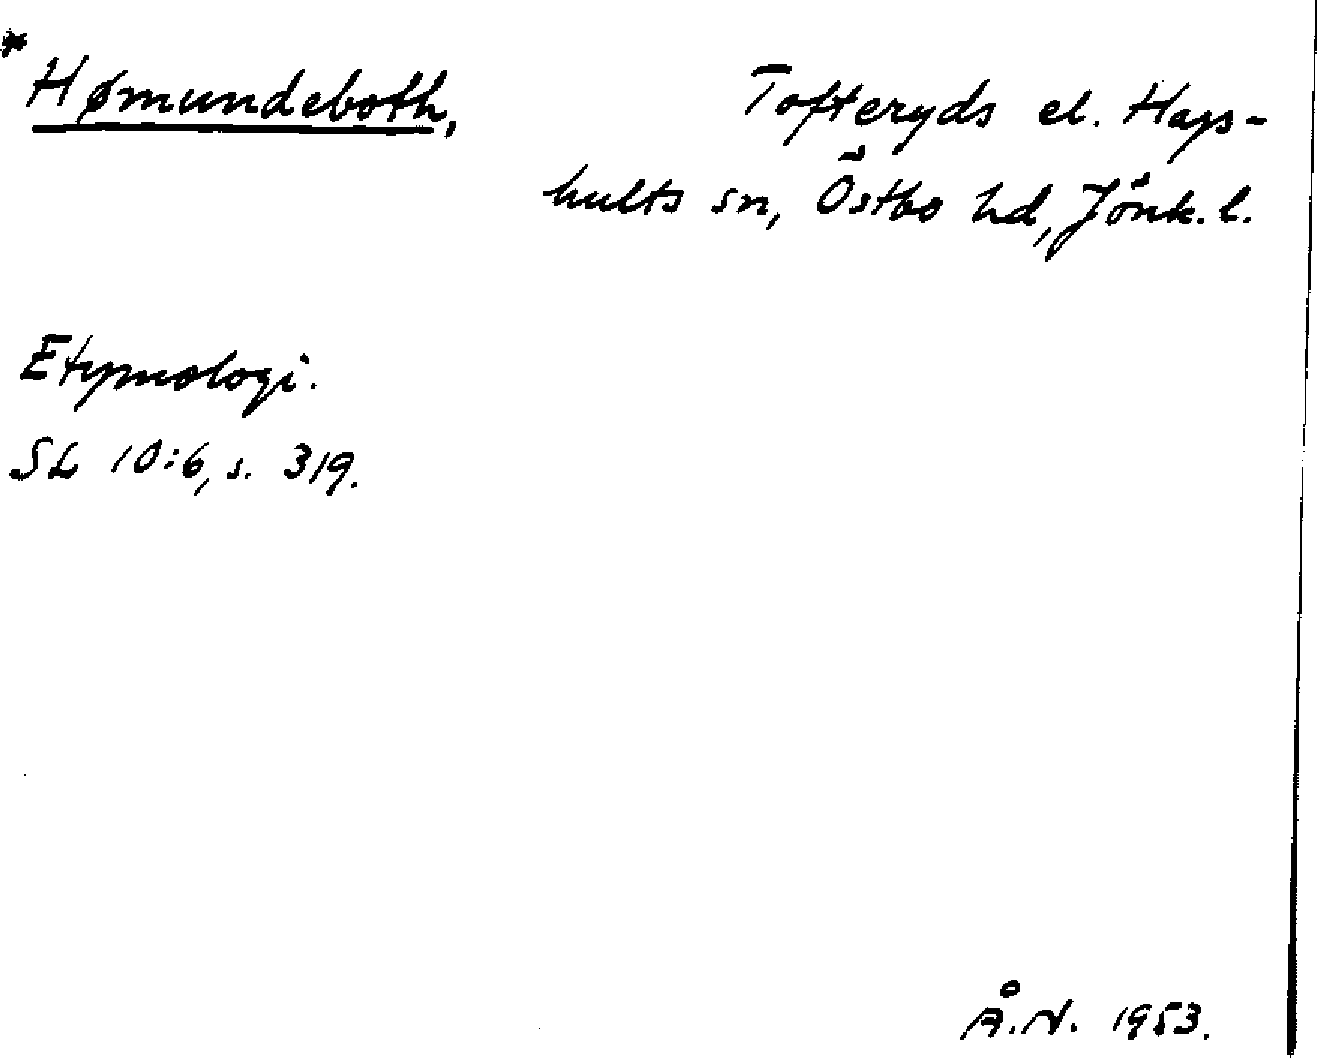 * Hømundeboth, Tofteryds el. Hags-
hults sn, Östbo hd, Jönk. l.
Etymologi.
SL 10:6, s. 319.
Å.N. 1953.